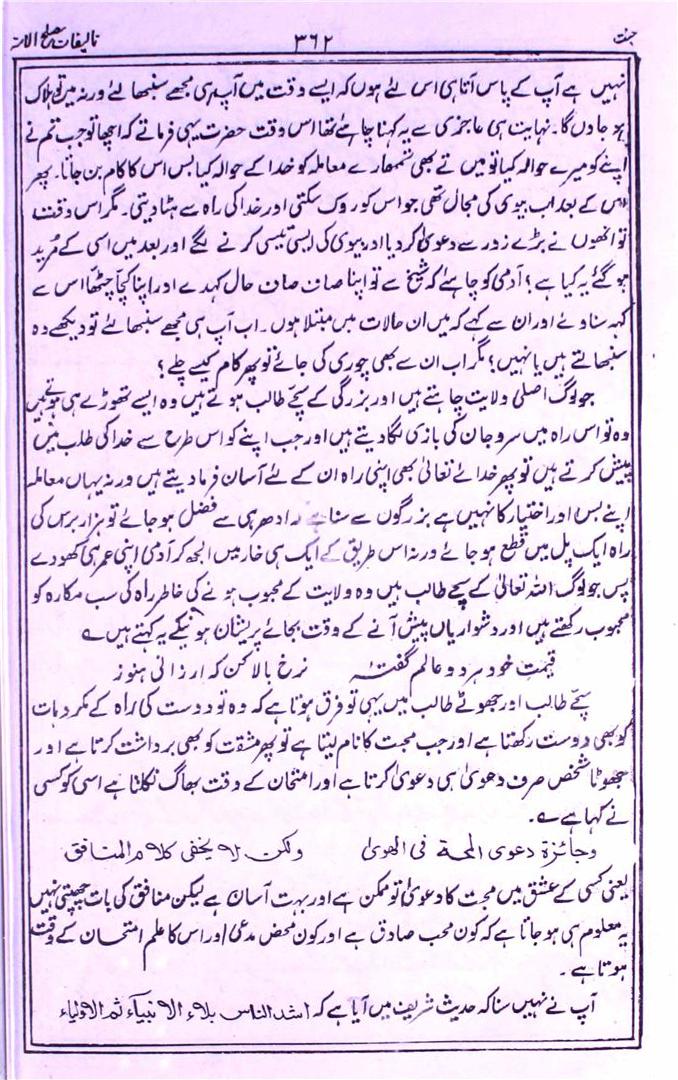 جنت
۳۶۲
تالیفات مصلح الامۃ
نہیں ہے آپ کے پاس آتا ہی اس لئے ہوں کہ ایسے وقت میں آپ ہی مجھے سنبھالئے ورنہ میں تو ہلاک
ہو جاؤں گا۔ نہایت ہی عاجزی سے یہ کہنا چاہئے تھا اس وقت حضرت یہی فرماتے کہ اچھا تو جب تم نے
اپنے کو میرے حوالہ کیا تو میں نے بھی تمھارے معاملہ کو خدا کے حوالہ کیا بس اس کا کام بن جاتا۔ پھر
اس کے بعد اب بیوی کی مجال تھی جو اس کو روک سکتی اور خدا کی راہ سے ہٹا دیتی۔ مگر اس وقت
تو انھوں نے بڑے زور سے دعویٰ کر دیا اور بیوی کی ایسی تیسی کرنے لگے اور بعد میں اسی کے مرید
ہو گئے یہ کیا ہے؟ آدمی کو چاہئے کہ شیخ سے تو اپنا صاف صاف حال کہدے اور اپنا کچا چٹھا اس سے
کہہ سناوے اور ان سے کہے کہ میں ان حالات میں مبتلا ہوں۔ اب آپ ہی مجھے سنبھالئے تو دیکھے وہ
سنبھالتے ہیں یا نہیں؟ مگر اب ان سے بھی چوری کی جائے تو پھر کام کیسے چلے؟
جو لوگ اصلی ولایت چاہتے ہیں اور بزرگی کے سچے طالب ہوتے ہیں وہ ایسے تھوڑے ہی ہوتے ہیں
وہ تو اس راہ میں سر و جان کی بازی لگا دیتے ہیں اور جب اپنے کو اس طرح سے خدا کی طلب میں
پیش کرتے ہیں تو پھر خدائے تعالیٰ بھی اپنی راہ ان کے لئے آسان فرما دیتے ہیں ورنہ یہاں معاملہ
اپنے بس اور اختیار کا نہیں ہے بزرگوں سے سنا ہے ادھر ہی سے فضل ہو جائے تو ہزار برس کی
راہ ایک پل میں قطع ہو جائے ورنہ اس طریق کے ایک ہی خار میں الجھ کر آدمی اپنی عمر ہی کھو دے
پس جو لوگ اللہ تعالیٰ کے سچے طالب ہیں وہ ولایت کے محبوب ہونے کی خاطر راہ کی سب مکارہ کو
محبوب رکھتے ہیں اور دشواریاں پیش آنے کے وقت بجائے پریشان ہونیکے یہ کہتے ہیں ؎
قیمت خود ہر دو عالم گفتۂ نرخ بالا کن کہ ارزانی ہنوز
سچے طالب اور جھوٹے طالب میں یہی تو فرق ہوتا ہے کہ وہ تو دوست کی راہ کے مکروہات
کو بھی دوست رکھتا ہے اور جب محبت کا نام لیتا ہے تو پھر مشقت کو بھی برداشت کرتا ہے اور
جھوٹا شخص صرف دعویٰ ہی دعویٰ کرتا ہے اور امتحان کے وقت بھاگ نکلتا ہے اسی کو کسی
نے کہا ہے ؎۔
وجائزۃ دعوی المحبۃ فی الھویٰ ولکن لا یخفی کلام المنافق
یعنی کسی کے عشق میں محبت کا دعویٰ تو ممکن ہے اور بہت آسان ہے لیکن منافق کی بات چھپتی نہیں
یہ معلوم ہی ہو جاتا ہے کہ کون محب صادق ہے اور کون محض مدعی اور اس کا علم امتحان کے وقت
ہوتا ہے۔
آپ نے نہیں سنا کہ حدیث شریف میں آیا ہے کہ اشد الناس بلاء الانبیاء ثم الاولیاء